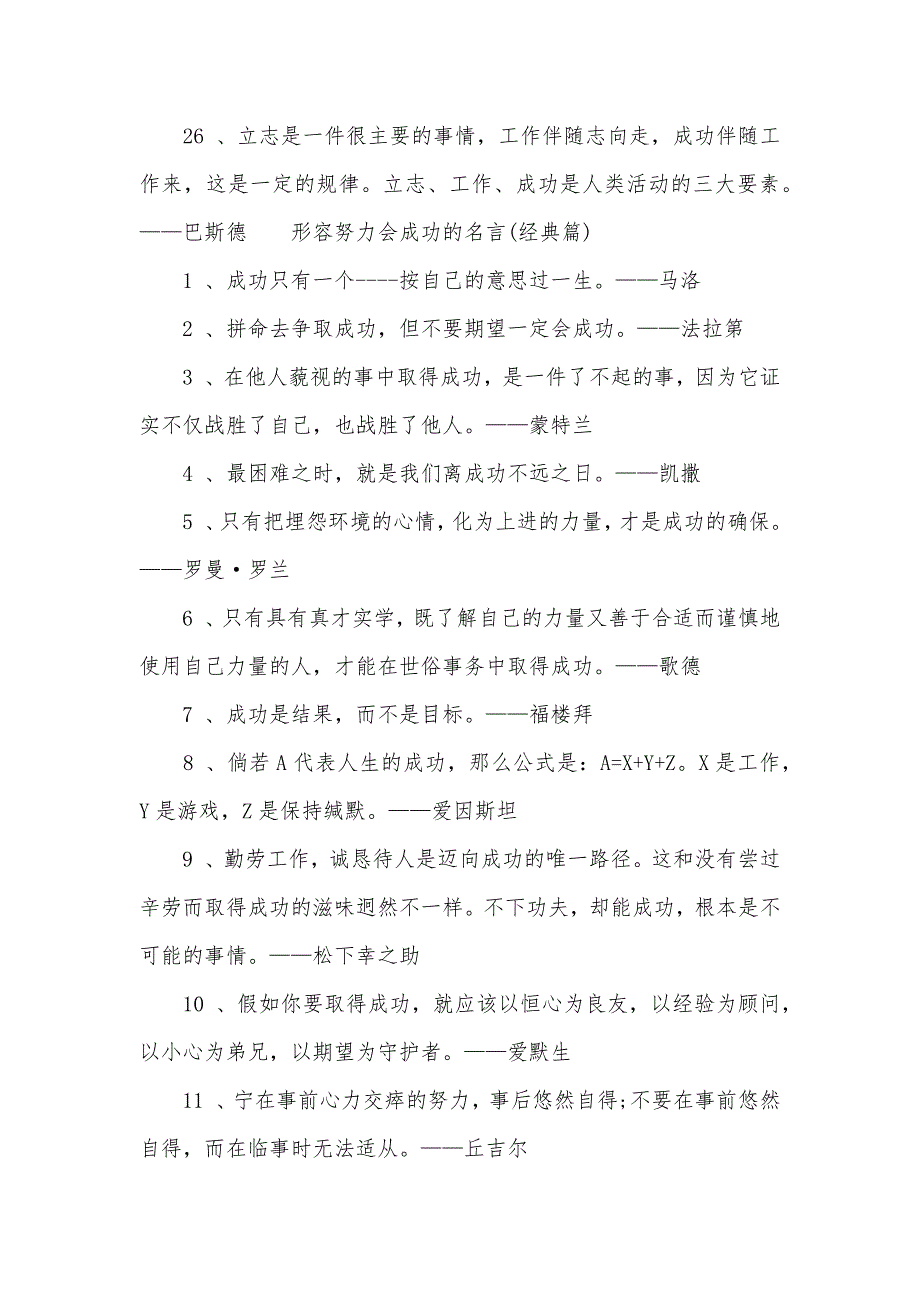 26 、立志是一件很主要的事情，工作伴随志向走，成功伴随工
作来，这是一定的规律。立志、工作、成功是人类活动的三大要素。
——巴斯德　　形容努力会成功的名言(经典篇)
1 、成功只有一个----按自己的意思过一生。——马洛
2 、拼命去争取成功，但不要期望一定会成功。——法拉第
3 、在他人藐视的事中取得成功，是一件了不起的事，因为它证
实不仅战胜了自己，也战胜了他人。——蒙特兰
4 、最困难之时，就是我们离成功不远之日。——凯撒
5 、只有把埋怨环境的心情，化为上进的力量，才是成功的确保。
——罗曼·罗兰
6 、只有具有真才实学，既了解自己的力量又善于合适而谨慎地
使用自己力量的人，才能在世俗事务中取得成功。——歌德
7 、成功是结果，而不是目标。——福楼拜
8 、倘若A代表人生的成功，那么公式是：A=X+Y+Z。X是工作，
Y是游戏，Z是保持缄默。——爱因斯坦
9 、勤劳工作，诚恳待人是迈向成功的唯一路径。这和没有尝过
辛劳而取得成功的滋味迥然不一样。不下功夫，却能成功，根本是不
可能的事情。——松下幸之助
10 、假如你要取得成功，就应该以恒心为良友，以经验为顾问，
以小心为弟兄，以期望为守护者。——爱默生
11 、宁在事前心力交瘁的努力，事后悠然自得;不要在事前悠然
自得，而在临事时无法适从。——丘吉尔